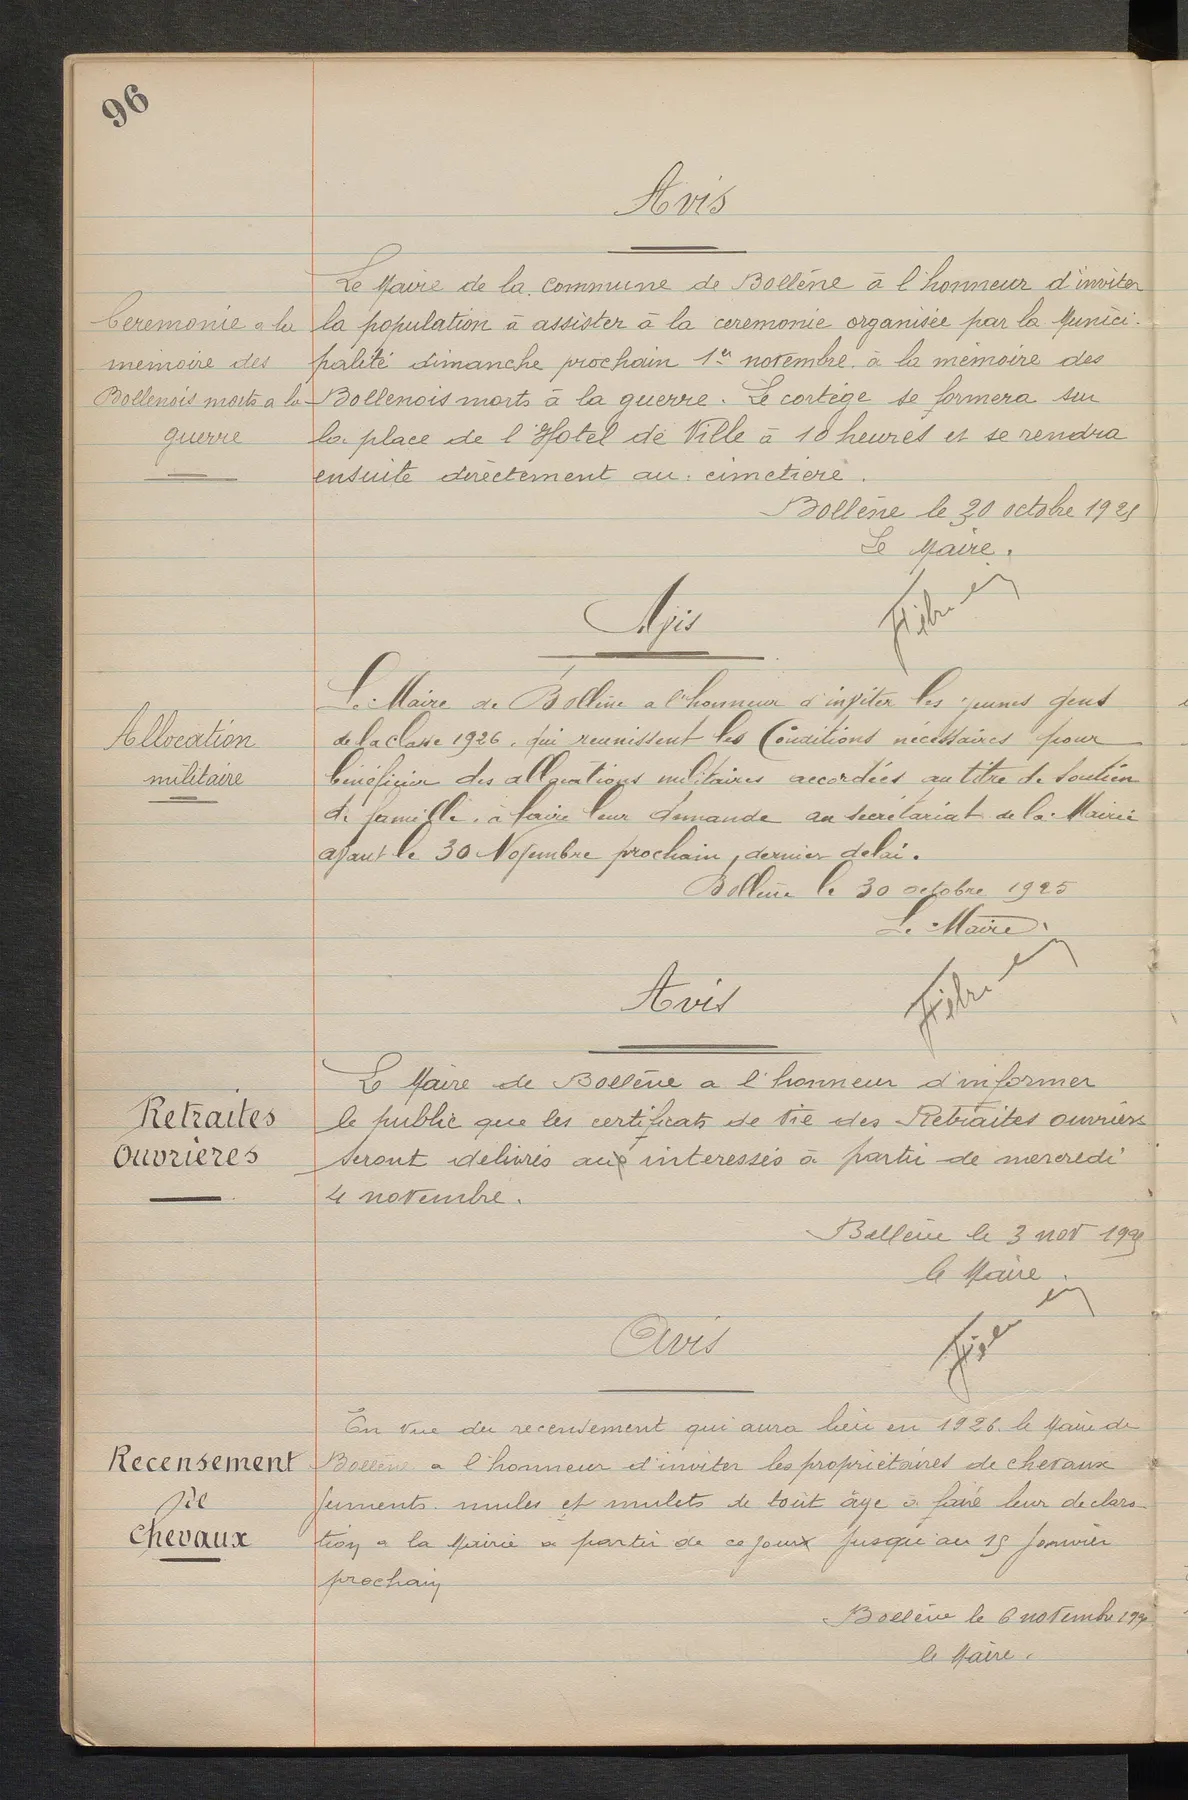 96
Avis
Le Maire de la commune de Bollène à l'honneur d'inviter
Ceremonie a la
la population à assister à la ceremonie organisée par la Munici-
memoire des
palité dimanche prochain 1er novembre à la mémoire des
Bollenois morts a la
Bollenois morts à la guerre. Le cortège se formera sur
guerre
la place de l'Hotel de Ville à 10 heures et se rendra
ensuite directement au cimetière.
Bollène le 30 octobre 1925
Le Maire.
Avis
Le Maire de Bollène a l'honneur d'inviter les jeunes gens
Allocation
de la classe 1926, qui reunissent les Conditions nécessaires pour
militaire
bénéficier des allocations militaires accordées au titre de soutien
de famille, à faire leur demande au secrétariat de la Mairie
avant le 30 Novembre prochain, dernier delai.
Bollène le 30 octobre 1925
Le Maire.
Avis
Le Maire de Bollène a l'honneur d'informer
Retraites
le public que les certificats de vie des Retraites ouvrières
Ouvrières
seront delivrés aux interessés à partir de mercredi
4 novembre.
Bollène le 3 nov 1925
le Maire.
Avis
En vue du recensement qui aura lieu en 1926. le Maire de
Recensement
Bollène a l'honneur d'inviter les propriétaires de chevaux
de
juments. mules et mulets de tout âge à faire leur declara-
Chevaux
tion a la Mairie a partir de ce jour jusqu'au 15 Janvier
prochain
Bollène le 6 novembre 192
le Maire.